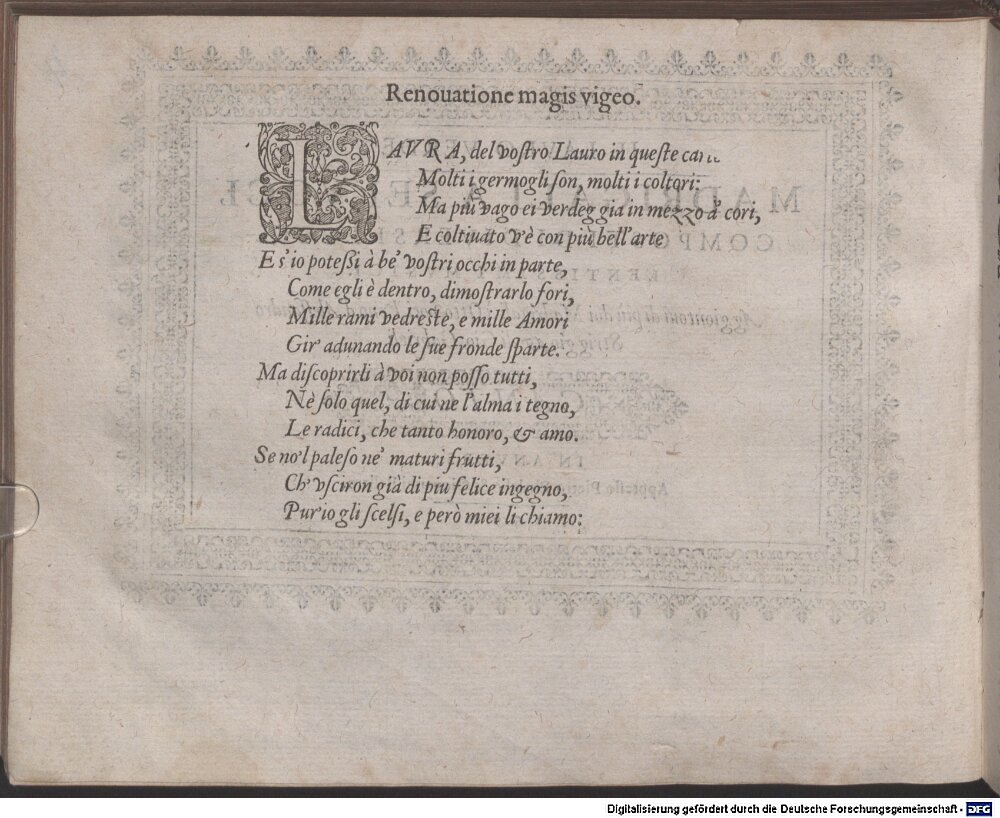 Renouatione magis vigeo.
LAVRA, del vostro Lauro in queste
Molti i germogli son, molti i coltori:
Ma più vago ei verdeggia in mezzo a' cori,
E coltiuato v'è con più bell'arte
E s'io potessi à be' vostri occhi in parte,
Come egli è dentro, dimostrarlo fori,
Mille rami vedreste, e mille Amori
Gir' adunando le sue fronde sparte.
Ma discoprirli à voi non posso tutti,
Nè solo quel, di cui ne l'alma i tegno,
Le radici, che tanto honoro, & amo.
Se no'l paleso ne' maturi frutti,
Ch' vsciron già di piu felice ingegno,
Pur io gli scelsi, e però miei li chiamo:
Digitalisierung gefördert durch die Deutsche Forschungsgemeinschaft - DFG